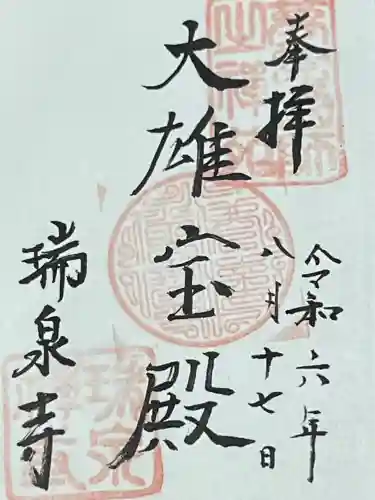 奉拝
令和六年
八月十七日
大雄宝殿
瑞泉寺